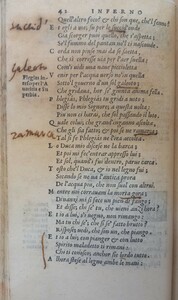 42 INFERNO
Quest'altro foco? & che son quei, che'l fenno?
E t egli a me, su per le sucide onde
Gia scorger puoi quello, che s'aspetta;
Se'l fummo del pantan nol ti nasconde.
C orda non pinse mai da se saetta,
Che si corresse via per l'aere snella;
Com'i vidi una naue piccioletta
V enir per l'acqua uerso noi in quella
Sotto'l gouerno d'un sol galeoto,
Che gridaua, hor se giunta anima fella.
P hlegias, Phlegias tu gridi a uoto
Disse lo mio Signore a questa uolta:
Piu non ci haurai, se non passando il loto.
Q
Che gli sia fatto, & poi se ne rammarca;
L o Duca mio discese ne la barca:
Et poi mi fece entrar appresso lui;
Et sol, quand i fui dentro, parue carca.
T osto che'l Duca, et io nel legno fui;
Secando se ne ua l'antica prora
De l'acqua piu, che non suol con altrui.
M entre noi correuam la morta gora;
Dinanzi mi si fece un pien di fango;
E t io a lui, s'i uegno, non rimango:
Ma tu chi se'; che si se' fatto brutto?
Rispose, uedi, che son un, che piango.
E t io a lui, con pianger & con lutto
Spirito maladetto ti rimani:
Ch'i ti conosco, anchor sie lordo tutto.
A llora stese al legno ambe le mani: